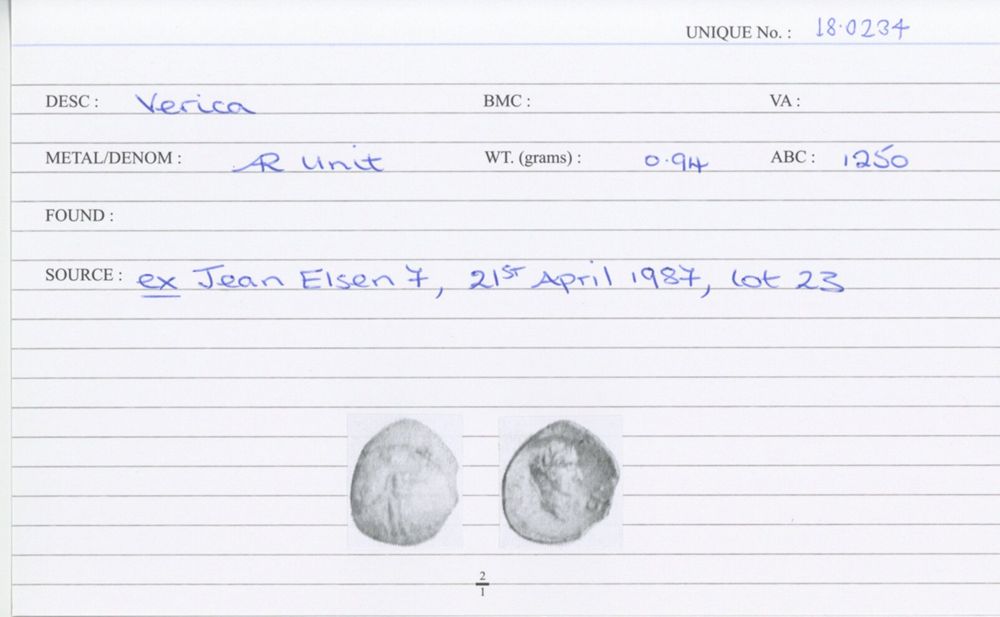 UNIQUE No. : 18·0234
DESC : Verica BMC : VA :
METAL/DENOM : AR Unit WT. (grams) : 0.94 ABC : 1250
FOUND :
SOURCE : ex Jean Elsen 7, 21st April 1987, lot 23
2
1